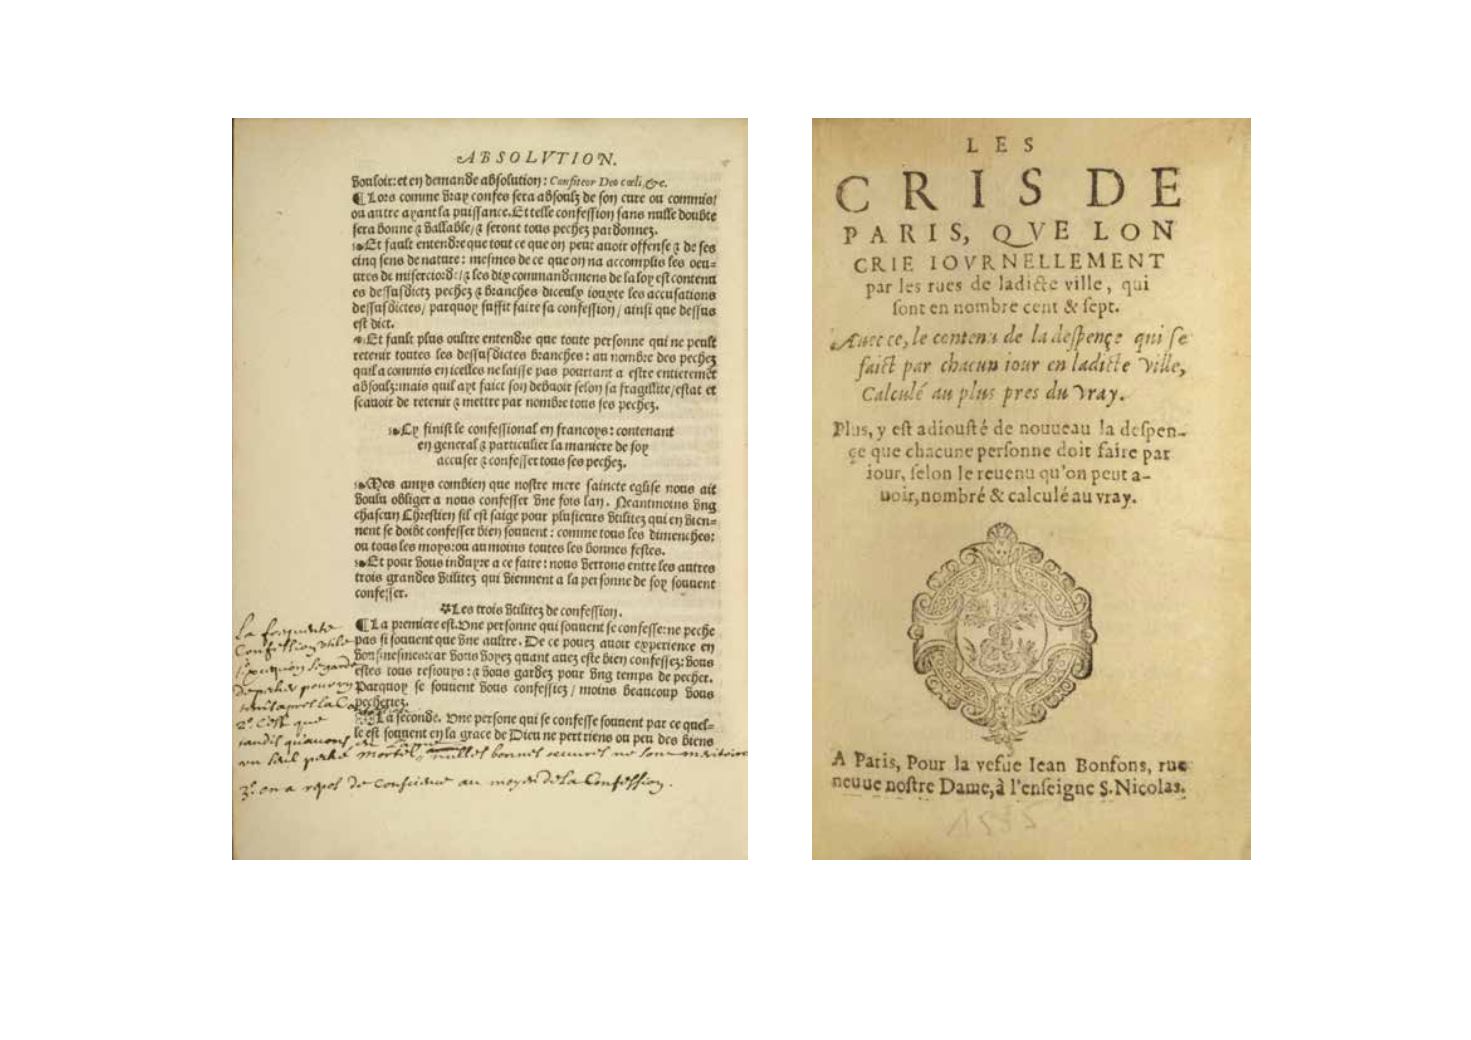 ABSOLVTION.
vouloir: et en demande absolution: Confiteor Deo cœli, &c.
¶ Lors comme vray confes sera absoulz de son cure ou commis/
ou autre ayant la puissance. Et telle confession sans nulle doubte
sera bonne & vallable/ & seront tous pechez pardonnez.
Et fault entendre que tout ce que on peut auoir offense & de ses
cinq sens de nature: mesmes de ce que on na accomplis les oeu=
ures de misericord: / & les dix commandemens de la loy est contenu
es dessusdictz pechez & branches diceulx iouxte les accusations
dessusdictes/ parquoy suffit faire sa confession/ ainsi que dessus
est dict.
Et fault plus oultre entendre que toute personne qui ne peult
retenir toutes les dessusdictes branches: au nombre des pechez
quil a commis en icelles ne laisse pas pourtant a estre entieremēt
absoulz: mais quil ayt faict son debuoir selon sa fragillite/ estat et
scauoir de retenir & mettre par nombre tous ses pechez.
Cy finist le confessional en francoys: contenant
en general & particulier la maniere de soy
accuser & confesser tous ses pechez.
Mes amys combien que nostre mere saincte eglise nous ait
voulu obliger a nous confesser vne fois lan. Neantmoins vng
chascun Chrestien sil est saige pour plusieurs vtilitez qui en vien=
nent se doibt confesser bien souuent: comme tous les dimenches:
ou tous les moys: ou au moins toutes les bonnes festes.
Et pour vous induyre a ce faire: nous verrons entre les autres
trois grandes vtilitez qui viennent a la personne de soy souuent
confesser.
Les trois vtilitez de confession.
¶ La premiere est. Vne personne qui souuent se confesse: ne peche
pas si souuent que vne aultre. De ce pouez auoir experience en
vousmesmes: car vous voyez quant auez este bien confessez: vous
estes tous resiouys: & vous gardez pour vng temps de pecher.
Parquoy se souuent vous confessiez / moins beaucoup vous
pecheriez.
La seconde. Vne persone qui se confesse souuent par ce quel=
le est souuent en la grace de Dieu ne pert riens ou peu des biens
la frequente
Confession utile
2º. C'est que
tandis quauons
mortel, nulles bonnes oeuures ne sont meritoires
3º. on a repos de Conscience au moyen de la Confession.
LES
CRIS DE
PARIS, QVE LON
CRIE IOVRNELLEMENT
par les rues de ladicte ville, qui
sont en nombre cent & sept.
Auec ce, le contenu de la despençe qui se
faict par chacun iour en ladicte ville,
Calculé au plus pres du vray.
Plus, y est adiousté de nouueau la despen-
çe que chacune personne doit faire par
iour, selon le reuenu qu'on peut a-
uoir, nombré & calculé au vray.
A Paris, Pour la vefue Iean Bonfons, rue
neuue nostre Dame, à l'enseigne S. Nicolas.